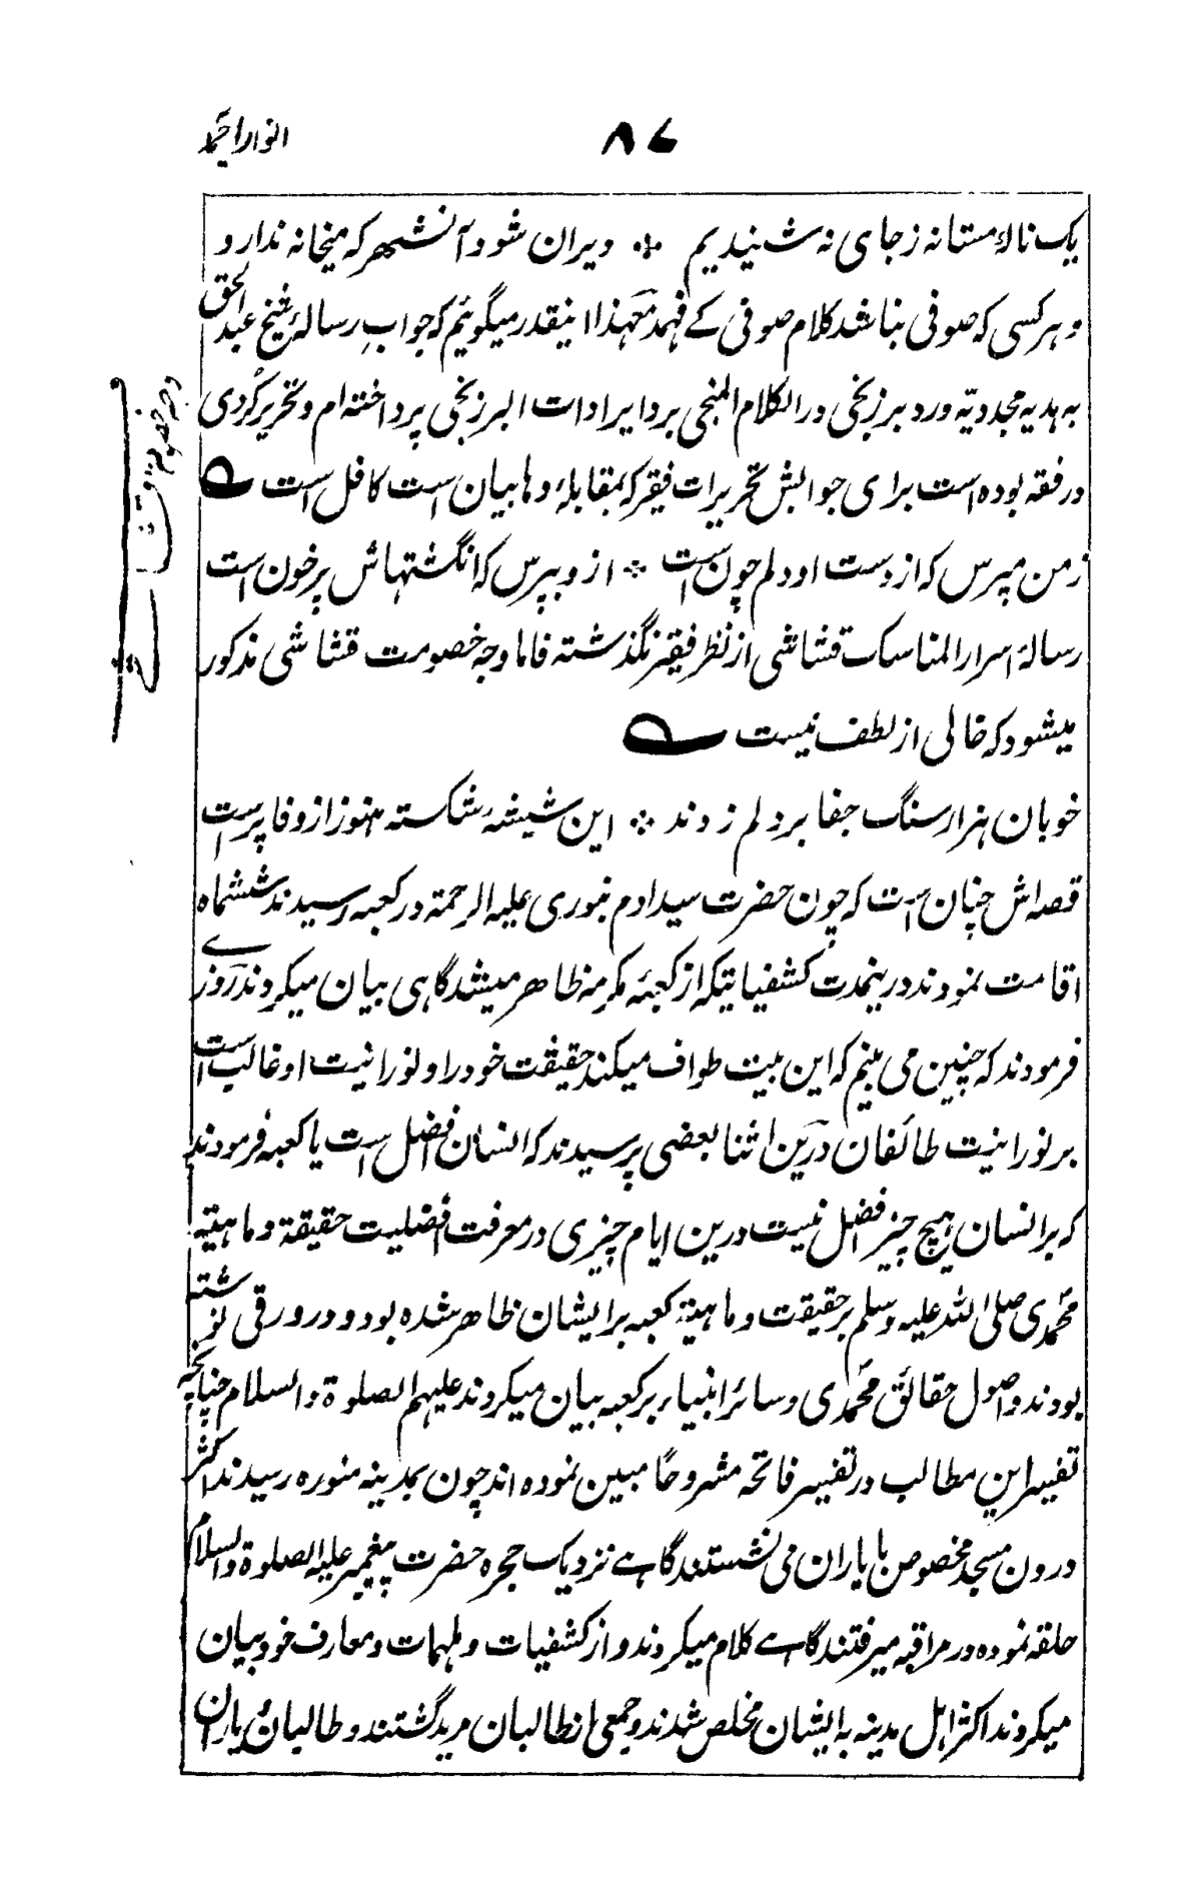 انوار احمد
۸۷
یک نالۂ مستانه ز جای نه شنیدیم ؞ ویران شود آنشهر که میخانه ندارد و
و هر کسی که صوفی نباشد کلام صوفی کے فہمد معہذا اینقدر میگویم که جواب رسالۂ شیخ عبد الحق
به هدیه مجددیّه ورد برزنجی در الکلام المنجی برد ایرادات البرزنجی پرداخته ام و تحریر کردی
در فقه بوده است برای جوابش تحریرات فقیر که بمقابلۂ وهابیان است کافل است
ز من مپرس که از دست او دلم چون است ؞ از و بپرس که انگشتهاش پر خون است
رسالۂ اسرار المناسک قشاشی از نظر فقیر نگذشته فاما وجه خصومت قشاشی مذکور
میشود که خالی از لطف نیست
خوبان هزار سنگ جفا بر دلم زدند ؞ این شیشۂ شکسته هنوز از وفا پر است
قصه اش چنان است که چون حضرت سید ادم بنوری علیه الرحمة در کعبه رسیدند ششماه
اقامت نمودند درینمدت کشفیاتیکه از کعبۂ مکرمه ظاهر میشد گاهی بیان میکردند روزے
فرمودند که چنین می بینم که این بیت طواف میکند حقیقت خود را و نورانیت او غالب است
بر نورانیت طائفان درین اثنا بعضی پرسیدند که انسان افضل است یا کعبه فرمودند
که بر انسان هیچ چیز افضل نیست درین ایام چیزی در معرفت افضلیت حقیقة و ماهیته
محمدی صلی الله علیه وسلم بر حقیقت و ماهیة کعبه بر ایشان ظاهر شده بود و در ورقی نوشته
بودند و اصول حقائق محمدی و سائر انبیاء بر کعبه بیان میکردند علیهم الصلوة والسلام چنانچه
تفسیر این مطالب در تفسیر فاتحه مشروحا مبین نموده اند چون بمدینه منوره رسیدند اکثر
درون مسجد مخصوص با یاران می نشستند گاهے نزدیک حجره حضرت پیغمبر علیه الصلوة والسلام
حلقه نموده در مراقبه میرفتند گاهے کلام میکردند و از کشفیات و ملهمات و معارف خود بیان
میکردند اکثر اهل مدینه به ایشان مخلص شدند و جمعی از طالبان مرید گشتند و طالبان و یاران
وجه خصومت قشاشے